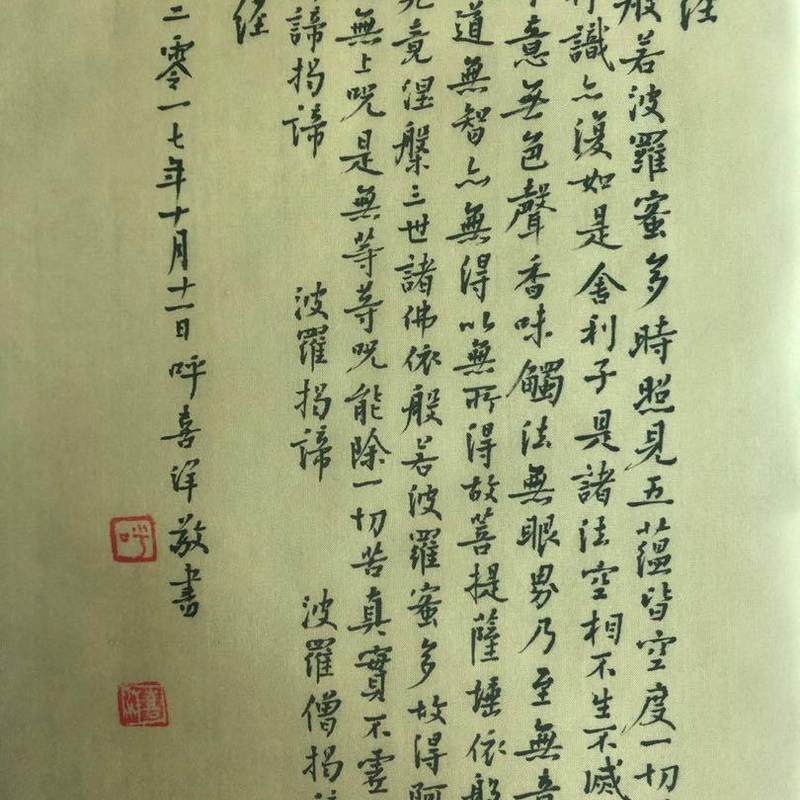 经
般若波羅蜜多時照見五蘊皆空度一切
行識亦復如是舍利子是諸法空相不生不滅
意无色聲香味觸法無眼界乃至無意
道無智亦無得以無所得故菩提薩埵依般
究竟涅槃三世諸佛依般若波羅蜜多故得阿
無上呪是無等等呪能除一切苦真實不虛
諦揭諦 波羅揭諦 波羅僧揭諦
经
二零一七年十月十一日呼喜洋敬書
呼